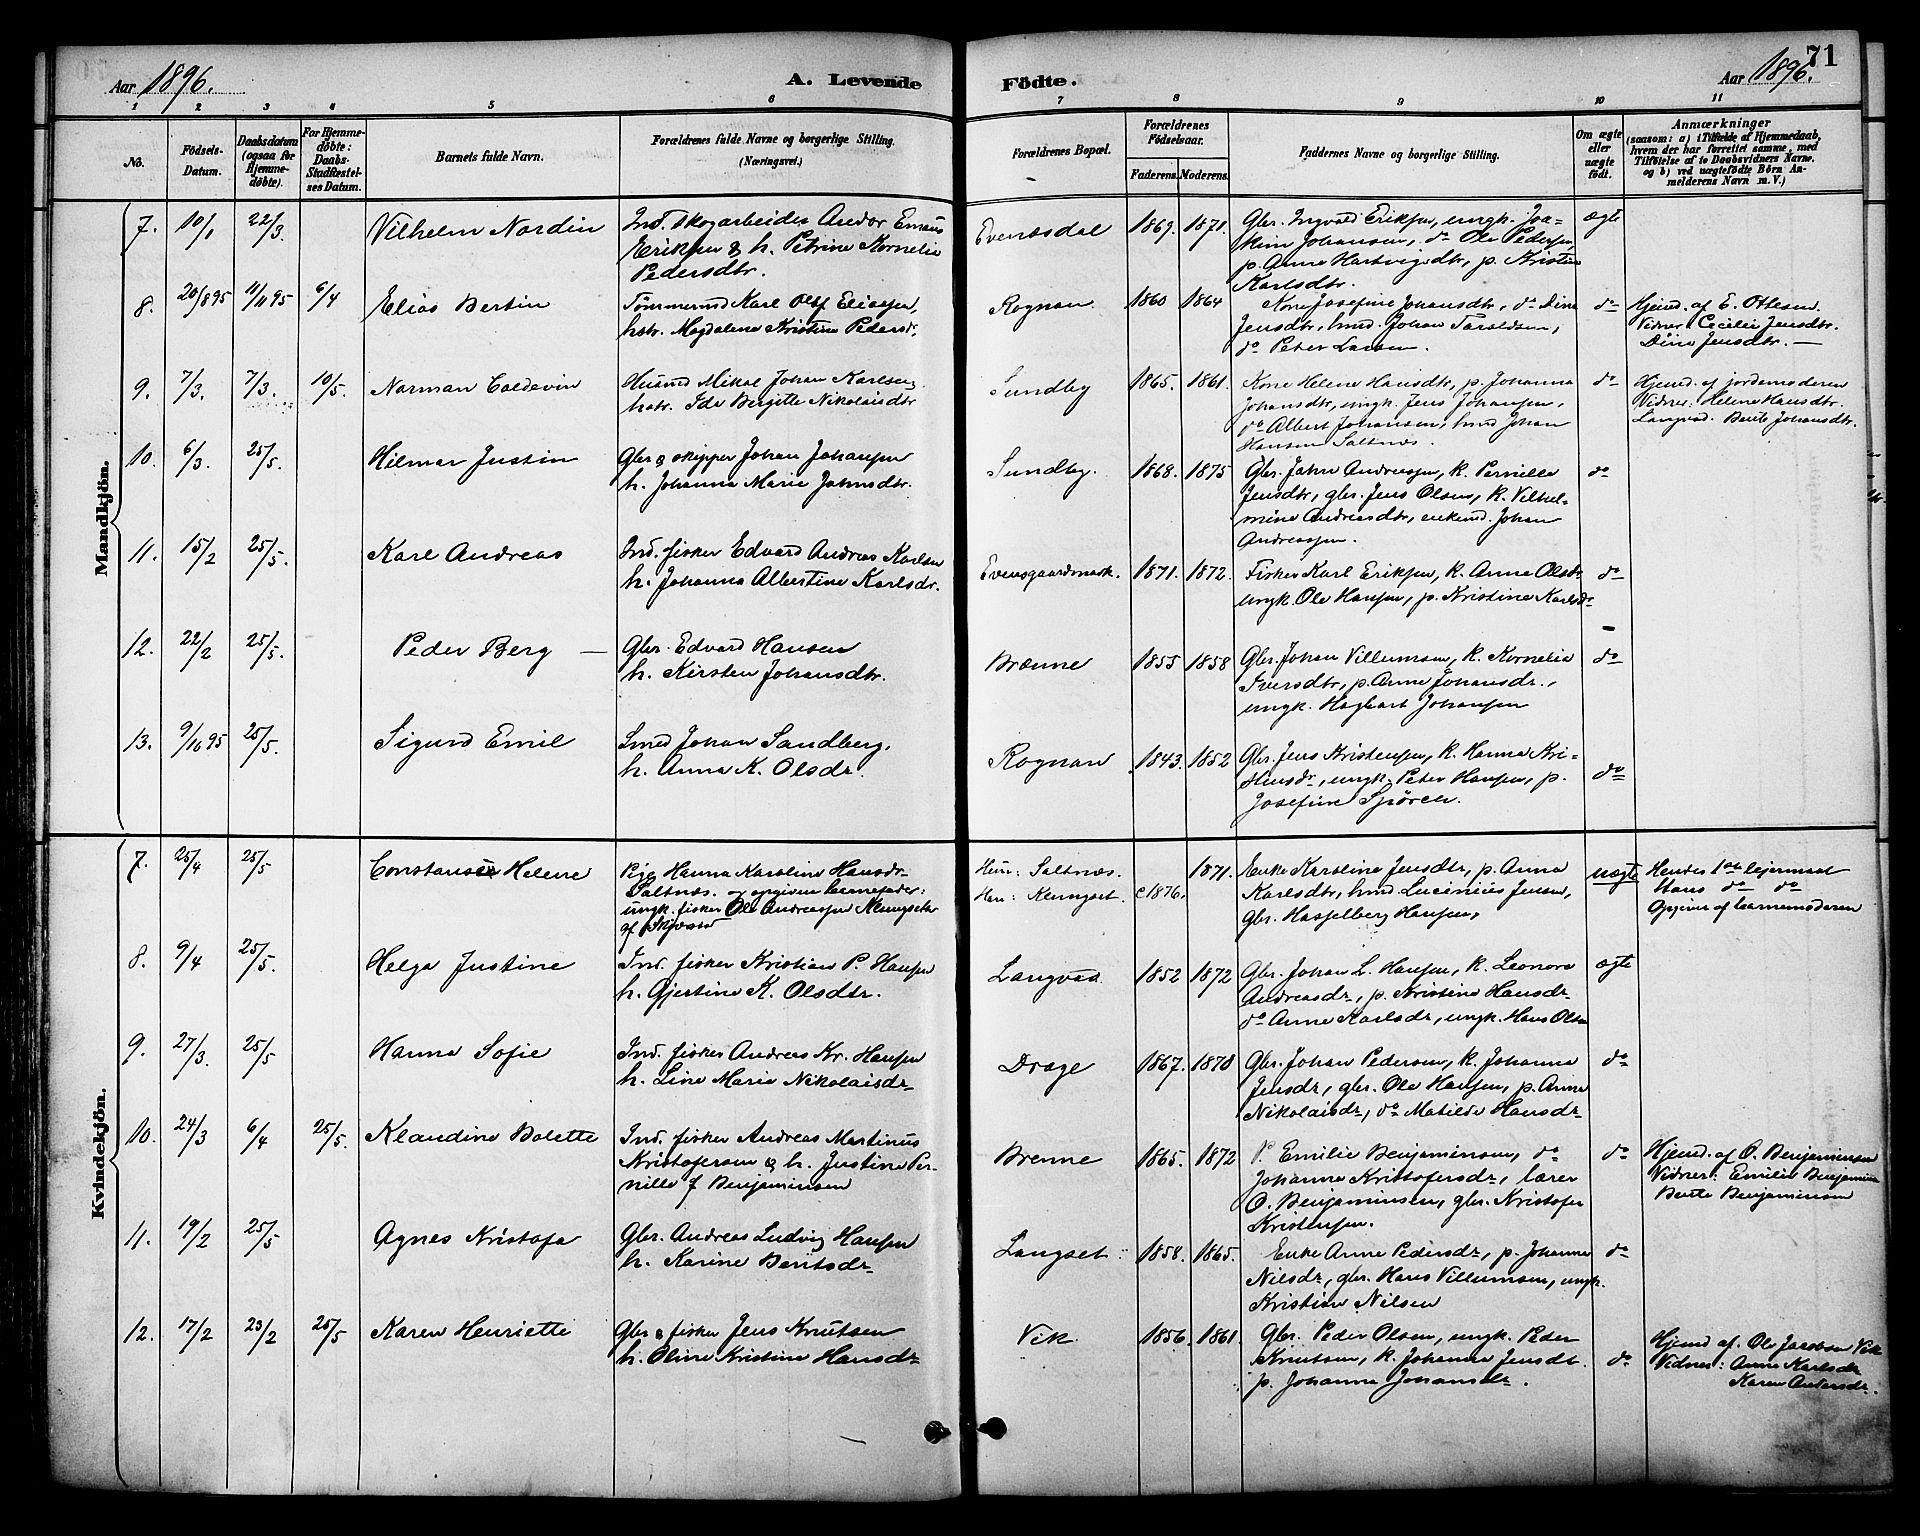 71
Aar 1896.
A. Levende
Födte.
Aar 1896.
1 2 3 4 5 6 7 8 9 10 11
No.
Födsels-
Datum.
Daabsdatum
(ogsaa for
Hjemme-
döbte).
For Hjemme-
döbte:
Daabs-
Stadfæstel-
ses Datum.
Barnets fulde Navn.
Forældrenes fulde Navne og borgerlige Stilling.
(Næringsvei.)
Forældrenes Bopæl.
Forældrenes
Födselsaar.
Faderens. Moderens.
Faddernes Navne og borgerlige Stilling.
Om ægte
eller
uægte
födt.
Anmærkninger
(saasom: a) i Tilfælde af Hjemmedaab,
hvem der har forrettet samme, med
Tilföielse af to Daabsvidners Navne.
og b) ved uægtefödte Börn An-
melderens Navn m. V.)
Mandkjön.
7. 10/1 22/3. Vilhelm Nordin
Ind. skogarbeider Andor Emaus
Eriksen & h. Petrine Kornelia
Pedersdtr.
Evensdal 1869. 1871.
Gbr. Ingvald Eriksen, ungk. Joa-
kim Johansen, do Ole Pedersen,
p. Anna Hartvigsdtr, p. Kristine
Karlsdtr.
ægte
8. 20/8 95 11/11 95 6/4 Elias Bertin
Tømmermd Karl Olaf Eliasen,
hstr. Magdalena Kristina Pedersdr.
Rognan 1860 1864
Kone Josefine Johansdtr, do Dina
Jensdtr, hmd. Johan Taraldsen,
do Peter Larsen.
do
Hjemd. af E. Ottesen
Vidner: Cecilie Jensdtr.
Dina Jensdtr. —
9. 7/3. 7/3. 10/5. Norman Coldevin
Husmd Mikal Johan Karlsen,
hstr. Ida Bergitte Nikolaisdtr
Sundby 1865. 1861.
Kone Helene Hansdtr, p. Johanna
Johansdtr, ungk. Jens Johansen,
do Albert Johansen, hmd Johan
Hansen Saltnæs.
do
Hjemd. af jordemoderen
Vidner: Helene Hansdtr.
Langvad. Berit Johansdtr.
10. 6/3. 25/5. Hilmar Justin
Gbr & skipper Johan Johansen
h. Johanna Marie Jahnsdtr.
Sundby. 1868. 1875
Gbr. Jahn Andreassen, k. Pernilla
Jensdtr, gbr. Jens Olsen, k. Vilhel-
mina Andreasdtr, enkemd. Johan
Andreassen.
do
11. 15/2 25/5. Karl Andreas
Ind. fisker Edvard Andreas Karlsen
h. Johanna Albertine Karlsdr.
Evensgaardsmark. 1871. 1872.
Fisker Karl Eriksen, k. Anna Olsdr
ungk. Ole Hansen, p. Kristine Karlsdr
do
12. 22/2 25/5. Peder Berg —
Gbr. Edvard Hansen
h. Kirsten Johansdtr.
Brænne 1855 1858
Gbr. Johan Villumsen, k. Kornelia
Iversdtr, p. Anna Johansdr.,
ungk. Hagbart Johansen
do
13. 9/10 95 25/5. Sigurd Emil
Smed Johan Sandberg,
h. Anna K. Olsdr.
Rognan 1843. 1852
Gbr. Jens Kristensen, k. Hanna Kri-
stensdr, ungk. Peter Hansen, p.
Josefine Spörch.
do
Kvindekjön.
7. 25/4 25/5 Constanse Helene
Pige Hanna Karoline Hansdr
Saltnæs. og opgiven barnefader:
ungk. fisker Ole Andreassen Klungset
af Skjerstad
Hun: Saltnæs.
Han: Klungset. c1876. 1871.
Enke Karoline Jensdtr, p. Anna
Karlsdtr, hmd Lucinius Jensen,
gbr. Hasselberg Hansen,
uægte
Hendes 1ste leiermaal
Hans do do
Opgivet af barnemoderen
8. 9/4 25/5. Helga Justine
Ind. fisker Kristian P. Hansen
h. Gjertine K. Olsdtr.
Langvad 1852 1872
Gbr. Johan L. Hansen, k. Leonora
Andreasdr, p. Kristina Hansdr
do Anne Karlsdr, ungk. Hans Olsen
ægte
9. 27/3. 25/5 Hanna Sofie
Ind. fisker Andreas Kr. Hansen
h. Lina Marie Nikolaisdr
Drage 1867. 1870
Gbr. Johan Pedersen, k. Johanna
Jensdr, gbr. Ole Hansen, p. Anna
Nikolaisdr, do Matilde Hansdr
do
10. 24/3 6/4 25/5. Klaudine Bolette
Ind. fisker Andreas Martinus
Kristofersen & h. Justine Per-
nille f Benjaminsen
Brenne 1865. 1872
P. Emilie Benjaminsen, do
Johanna Kristofersdr, lærer
O. Benjaminsen, gbr. Kristofer
Kristensen.
do
Hjemd. af O. Benjaminsen
Vidner: Emilie Benjaminsen
Berte Benjaminsen
11. 19/2 25/5 Agnes Kristofa
Gbr. Andreas Ludvig Hansen
h. Karine Bentsdr
Langset 1858. 1865.
Enke Anne Pedersdr, p. Johanna
Nilsdr, gbr. Hans Villumsen, ungk.
Kristian Nilsen
do
12. 17/2 23/2 25/5 Karen Henriette
Gbr & fisker Jens Knutsen
h. Oline Kristine Hansdr
Vik 1856. 1861.
Gbr. Peder Olsen, ungk. Peder
Knutsen, k. Johanna Jensdt.
p. Johanna Johansdr.
do
Hjemd af. Ole Jacobsen Vik
Vidner: Anna Karlsdr
Karen Andersdr.